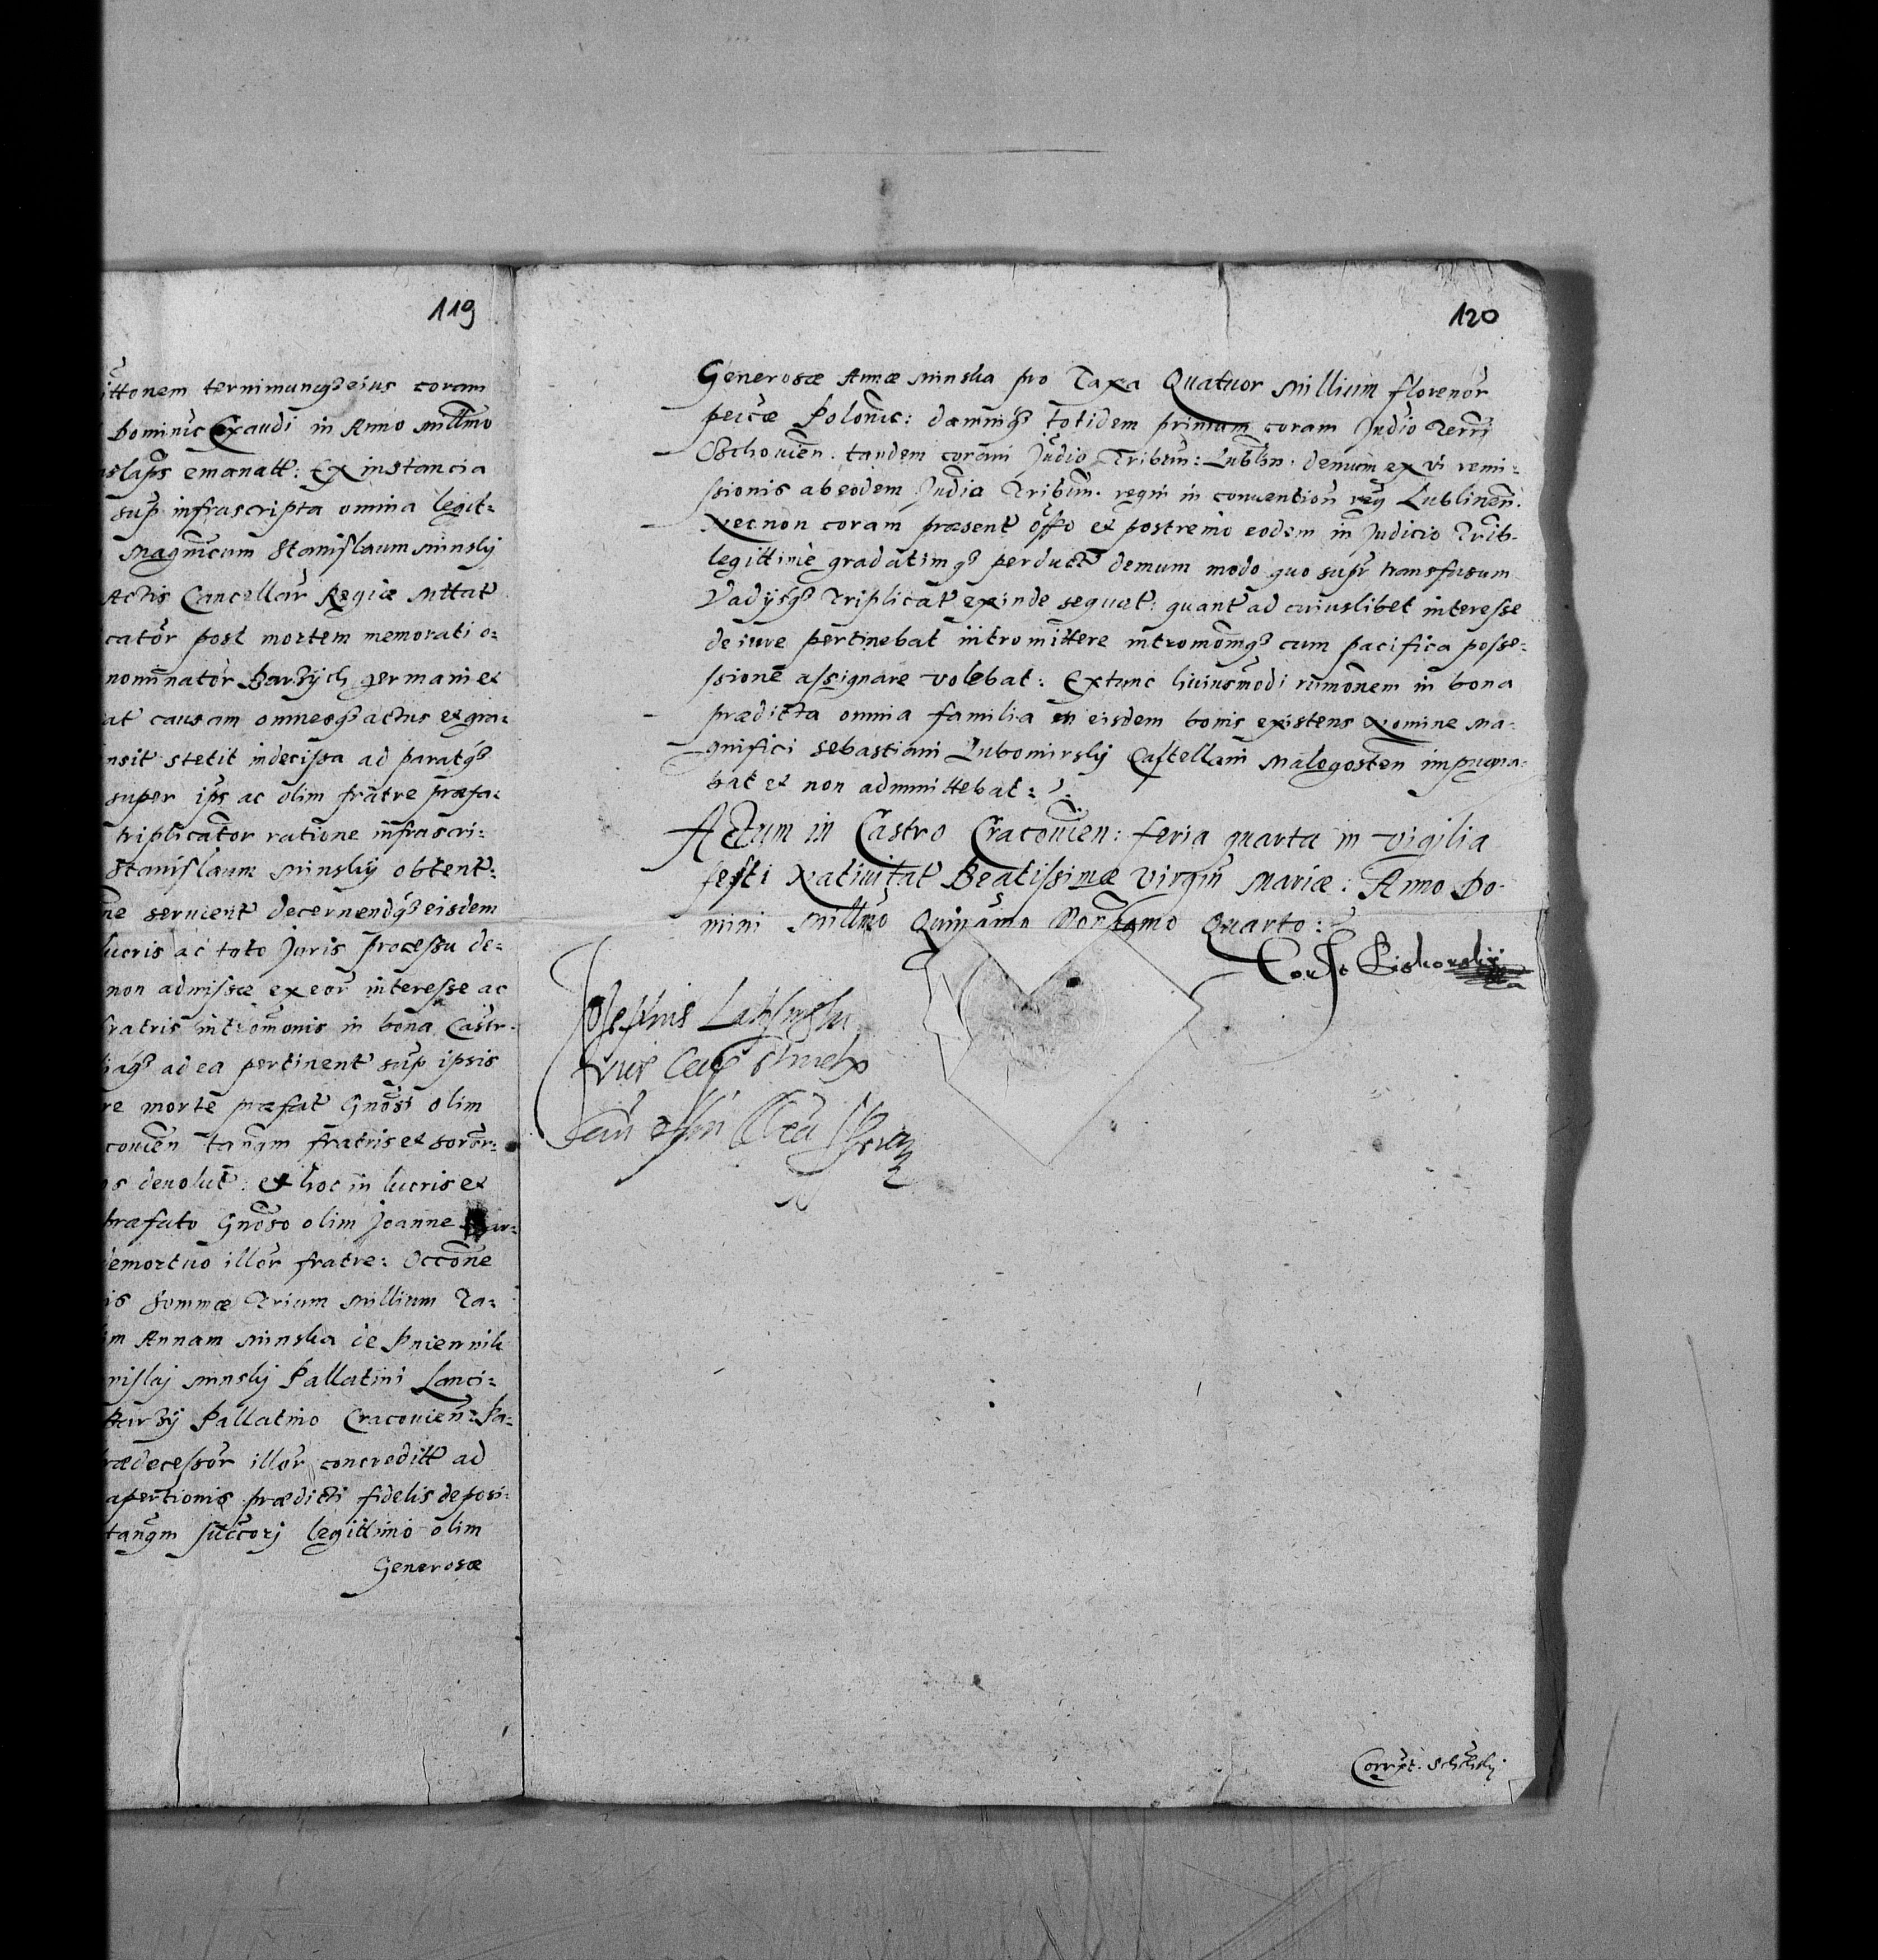 119
ittonem terminumq₃ eius coram
Dominic Exaudi in Anno Millmo
slaps emanatt: Ex instancia
sup infrascripta omnia legit=
Magnicum Stanislaum Minskÿ
Actis Cancellar Regiæ Mttat
cator post mortem memorati o=
nominator Barzÿch germani et
at causam omnesq₃ actus et gra=
nsit stetit indecissa ad paratq₃
super ips ac olim fratre præfa=
triplicator ratione infrascri=
Stanislaum Minskÿ obtent:
ne seruient decernendq₃ eisdem
lucris ac toto Juris Processu de=
non admissæ ex eor interesse ac
fratris intromonis in bona Castr=
iaq₃ ad ea pertinent sup ipsis
re morte præfat Gnosi olim
couien tanqm fratris et soror:
s deuolut: et hoc in lucris et
præfato Gnoso olim Joanne Bar=
demortuo illor fratre: Occone
is Sommæ Trium Millium Ta=
im Annam Minska de Pniewnik
nislaj Minskÿ Pallatini Lanci=
Barzÿ Pallatino Cracouien: Pa=
rædecessor illor concreditt ad
apertionis prædicti fidelis deposi=
tanqm succorj legittimo olim
Generosæ
120
Generosæ Annæ Minska pro Taxa Quatuor Millium florenor
peicæ Polonic: damniq₃ totidem primum coram Judio Terri
Czchouien. tandem coram Judio Tribun: Lublin. demum ex vi remi=
ssionis ab eodem Judia Tribun. regni in conuention reg Lublinen.
Necnon coram præsent offo et postremo eodem in Judicio Trib.
legittimè gradatimq₃ perduct demum modo quo supr transfusum
Vadÿsq₃ Triplicat exinde sequat: quant ad cuiuslibet interesse
de iure pertinebat intromittere intromomq₃ cum pacifica posse=
ssione assignare volebat: Extunc huiusmodi rumonem in bona
prædicta omnia familia in eisdem bonis existens Nomine Ma=
gnifici Sebastiani Lubomirskÿ Castellani Malogosten impugna=
bat et non admmittebat:
Actum in Castro Cracouien: feria quarta in vigilia
festi Natiuitat Beatissimæ Virgin Mariæ: Anno Do=
mini Millmo Quingmo Nongmo Quarto:
Corrpt. Schÿ